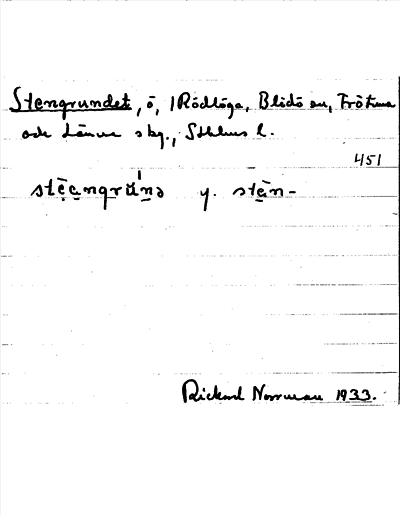 Stengrundet, ö, i Rödlöga, Blidö sn, Frötuna
och Länna skg., Sthlms l.
451
stēangrŭnə y. stēn-
Rickard Norrman 1933.